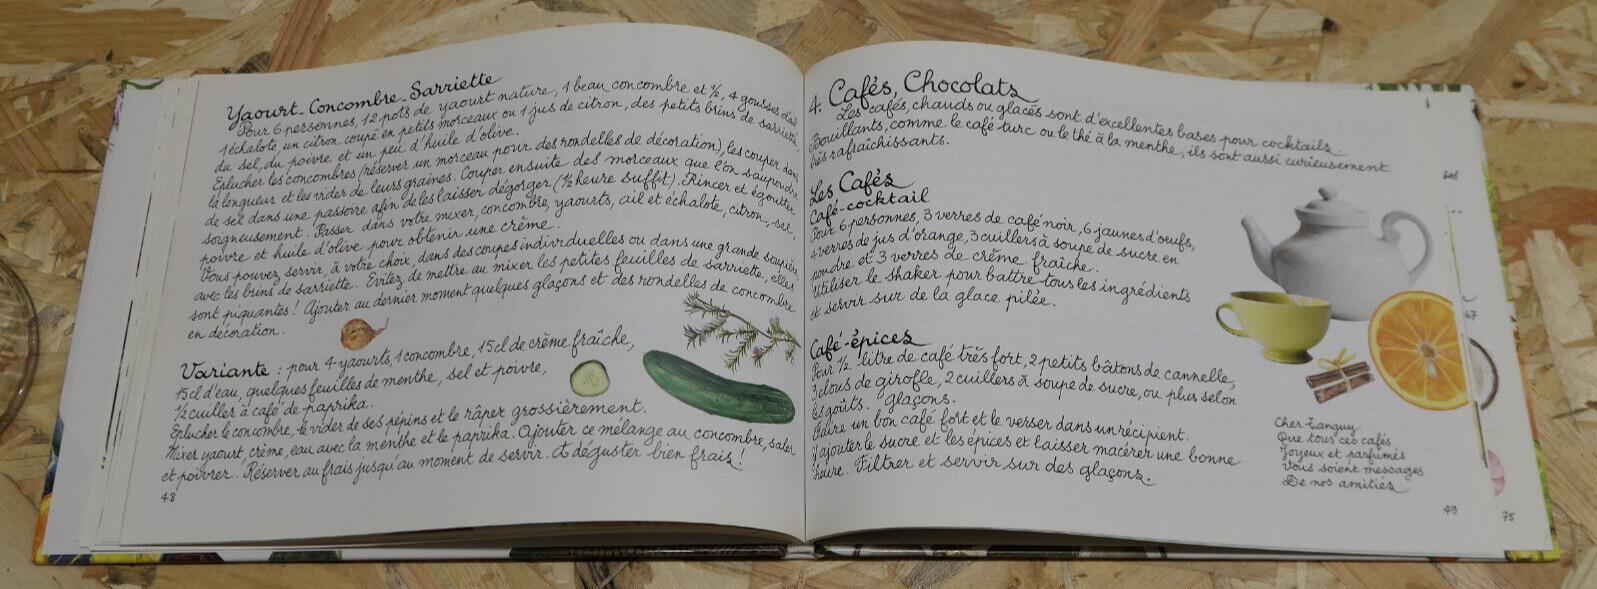 Yaourt-Concombre-Sarriette
Pour 6 personnes, 12 pots de yaourt nature, 1 beau concombre et ½, 4 gousses d'ail
1 échalote, un citron coupé en petits morceaux ou 1 jus de citron, des petits brins de sarriette,
du sel, du poivre et un peu d'huile d'olive.
Eplucher les concombres (réserver un morceau pour des rondelles de décoration), les couper dans
la longueur et les vider de leurs graines. Couper ensuite des morceaux que l'on saupoudre
de sel dans une passoire afin de les laisser dégorger (½ heure suffit). Rincer et égoutter
soigneusement. Passer dans votre mixer, concombre, yaourts, ail et échalote, citron, sel,
poivre et huile d'olive pour obtenir une crème.
Vous pouvez servir, à votre choix, dans des coupes individuelles ou dans une grande soupière,
avec les brins de sarriette. Evitez de mettre au mixer les petites feuilles de sarriette, elles
sont piquantes! Ajouter au dernier moment quelques glaçons et des rondelles de concombre
en décoration.
Variante : pour 4 yaourts, 1 concombre, 15cl de crème fraîche,
15cl d'eau, quelques feuilles de menthe, sel et poivre,
½ cuiller à café de paprika.
Eplucher le concombre, le vider de ses pépins et le râper grossièrement.
Mixer yaourt, crème, eau avec la menthe et le paprika. Ajouter ce mélange au concombre, saler
et poivrer. Réserver au frais jusqu'au moment de servir. A déguster bien frais!
48
4. Cafés, Chocolats
Les cafés, chauds ou glacés sont d'excellentes bases pour cocktails.
Bouillants, comme le café turc ou le thé à la menthe, ils sont aussi curieusement
très rafraîchissants.
Les Cafés
Café-cocktail
Pour 6 personnes, 3 verres de café noir, 6 jaunes d'œufs,
4 verres de jus d'orange, 3 cuillers à soupe de sucre en
poudre et 3 verres de crème fraîche.
Utiliser le shaker pour battre tous les ingrédients
et servir sur de la glace pilée.
Café-épices
Pour ½ litre de café très fort, 2 petits bâtons de cannelle,
3 clous de girofle, 2 cuillers à soupe de sucre, ou plus selon
les goûts. glaçons.
Faire un bon café fort et le verser dans un récipient.
Y ajouter le sucre et les épices et laisser macérer une bonne
heure. Filtrer et servir sur des glaçons.
Cher Tanguy
Que tous ces cafés
Joyeux et parfumés
Vous soient messages
De nos amitiés
49
sel
67
75